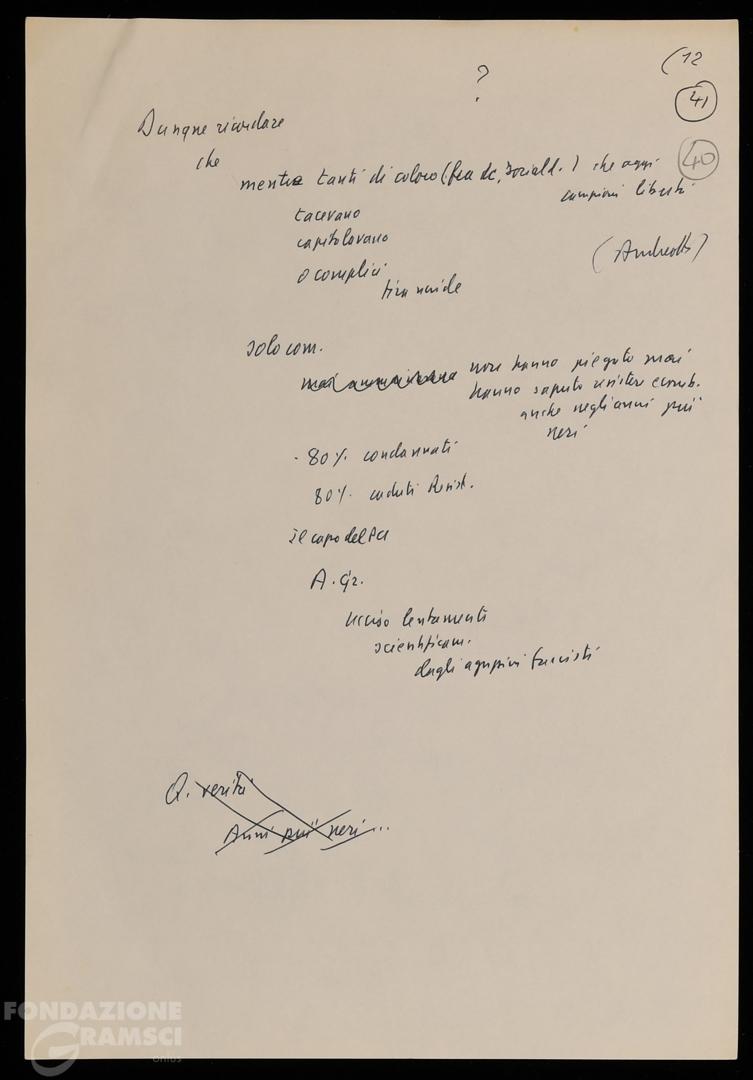 ?
(12
41
40
Dunque ricordare
che
mentre tanti di coloro (fra dc, Sociald.) che oggi
campioni libertà
tacevano
capitolavano
o complici
tirannide
(Andreotti)
solo com.
non hanno piegato mai
hanno saputo resistere e comb.
anche negli anni più
neri
- 80% condannati
80% caduti Resist.
Il capo del PCI
A. Gr.
ucciso lentamente
scientificam.
dagli aguzzini fascisti
Q. verità
Anni più neri...
FONDAZIONE
GRAMSCI
onlus